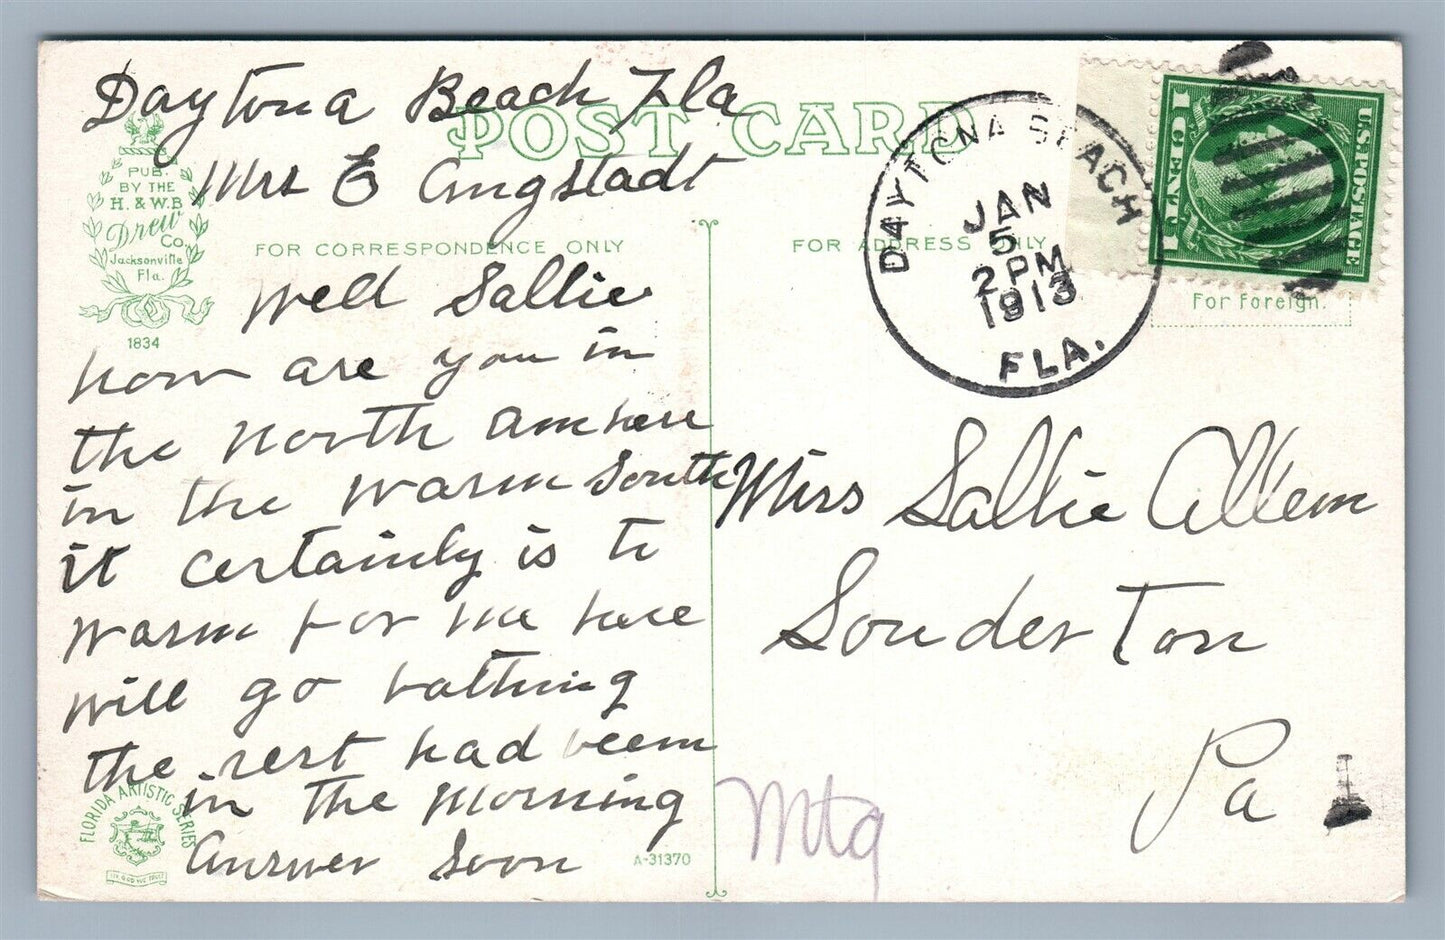 Daytona Beach Fla
POST CARD
Mrs E Angstadt
PUB.
BY THE
H. & W.B
Drew
Co
Jacksonville
Fla.
1834
FOR CORRESPONDENCE ONLY
Well Sallie
how are you in
the north am here
in the warm south
it certainly is to
warm for me here
will go bathing
the rest had beem
in the morning
answer soon
FLORIDA ARTISTIC SERIES
A-31370
FOR ADDRESS ONLY
DAYTONA BEACH
JAN
5
2 PM
1913
FLA.
U.S. POSTAGE
1 CENT 1
For Foreign.
Miss Sallie Allem
Souderton
Pa
Mtg